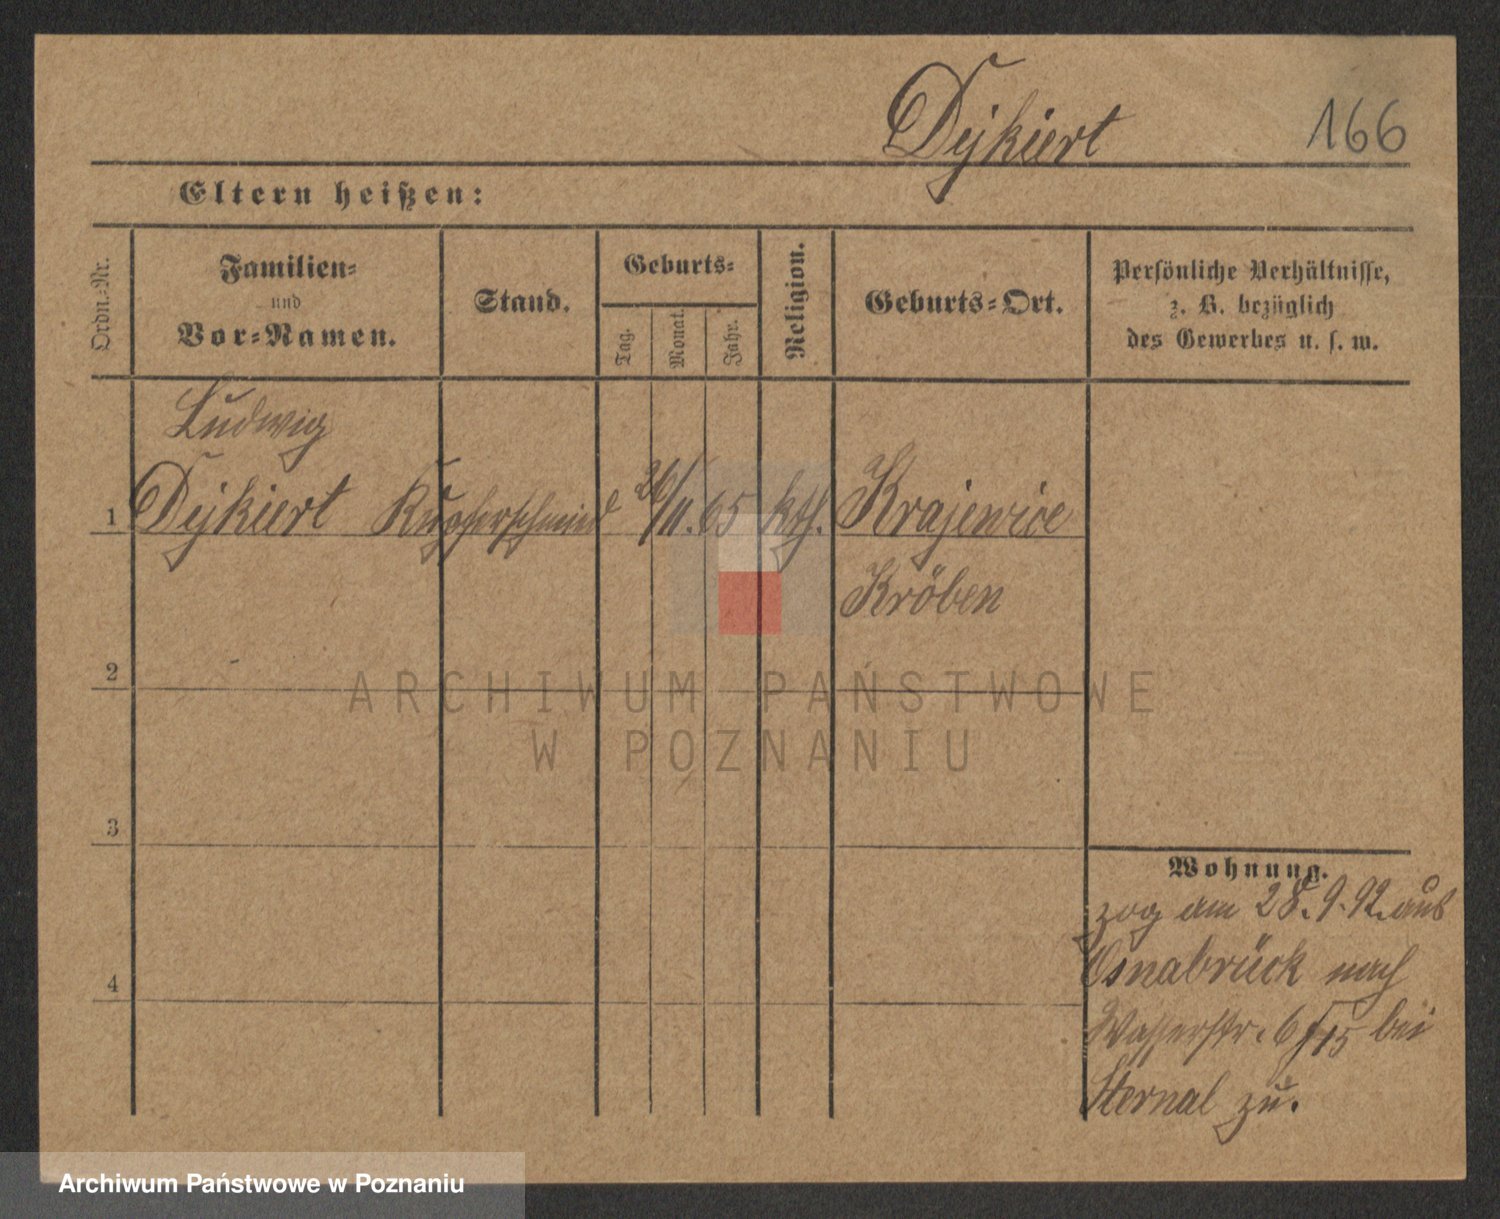 Dykiert 166
Eltern heißen:
Ordn.-Nr.
Familien-
und
Vor-Namen.
Stand.
Geburts-
Tag.
Monat.
Jahr.
Religion.
Geburts-Ort.
Persönliche Verhältnisse,
z. B. bezüglich
des Gewerbes u. s. w.
Ludwig
1 Dykiert Kupferschmied /11. 65 kth. Krajewice
Kröben
2
ARCHIWUM PAŃSTWOWE
W POZNANIU
3
Wohnung.
zog am 28. 9. 92. aus
Osnabrück nach
4
Wasserstr. bei
Sternal zu.
Archiwum Państwowe w Poznaniu